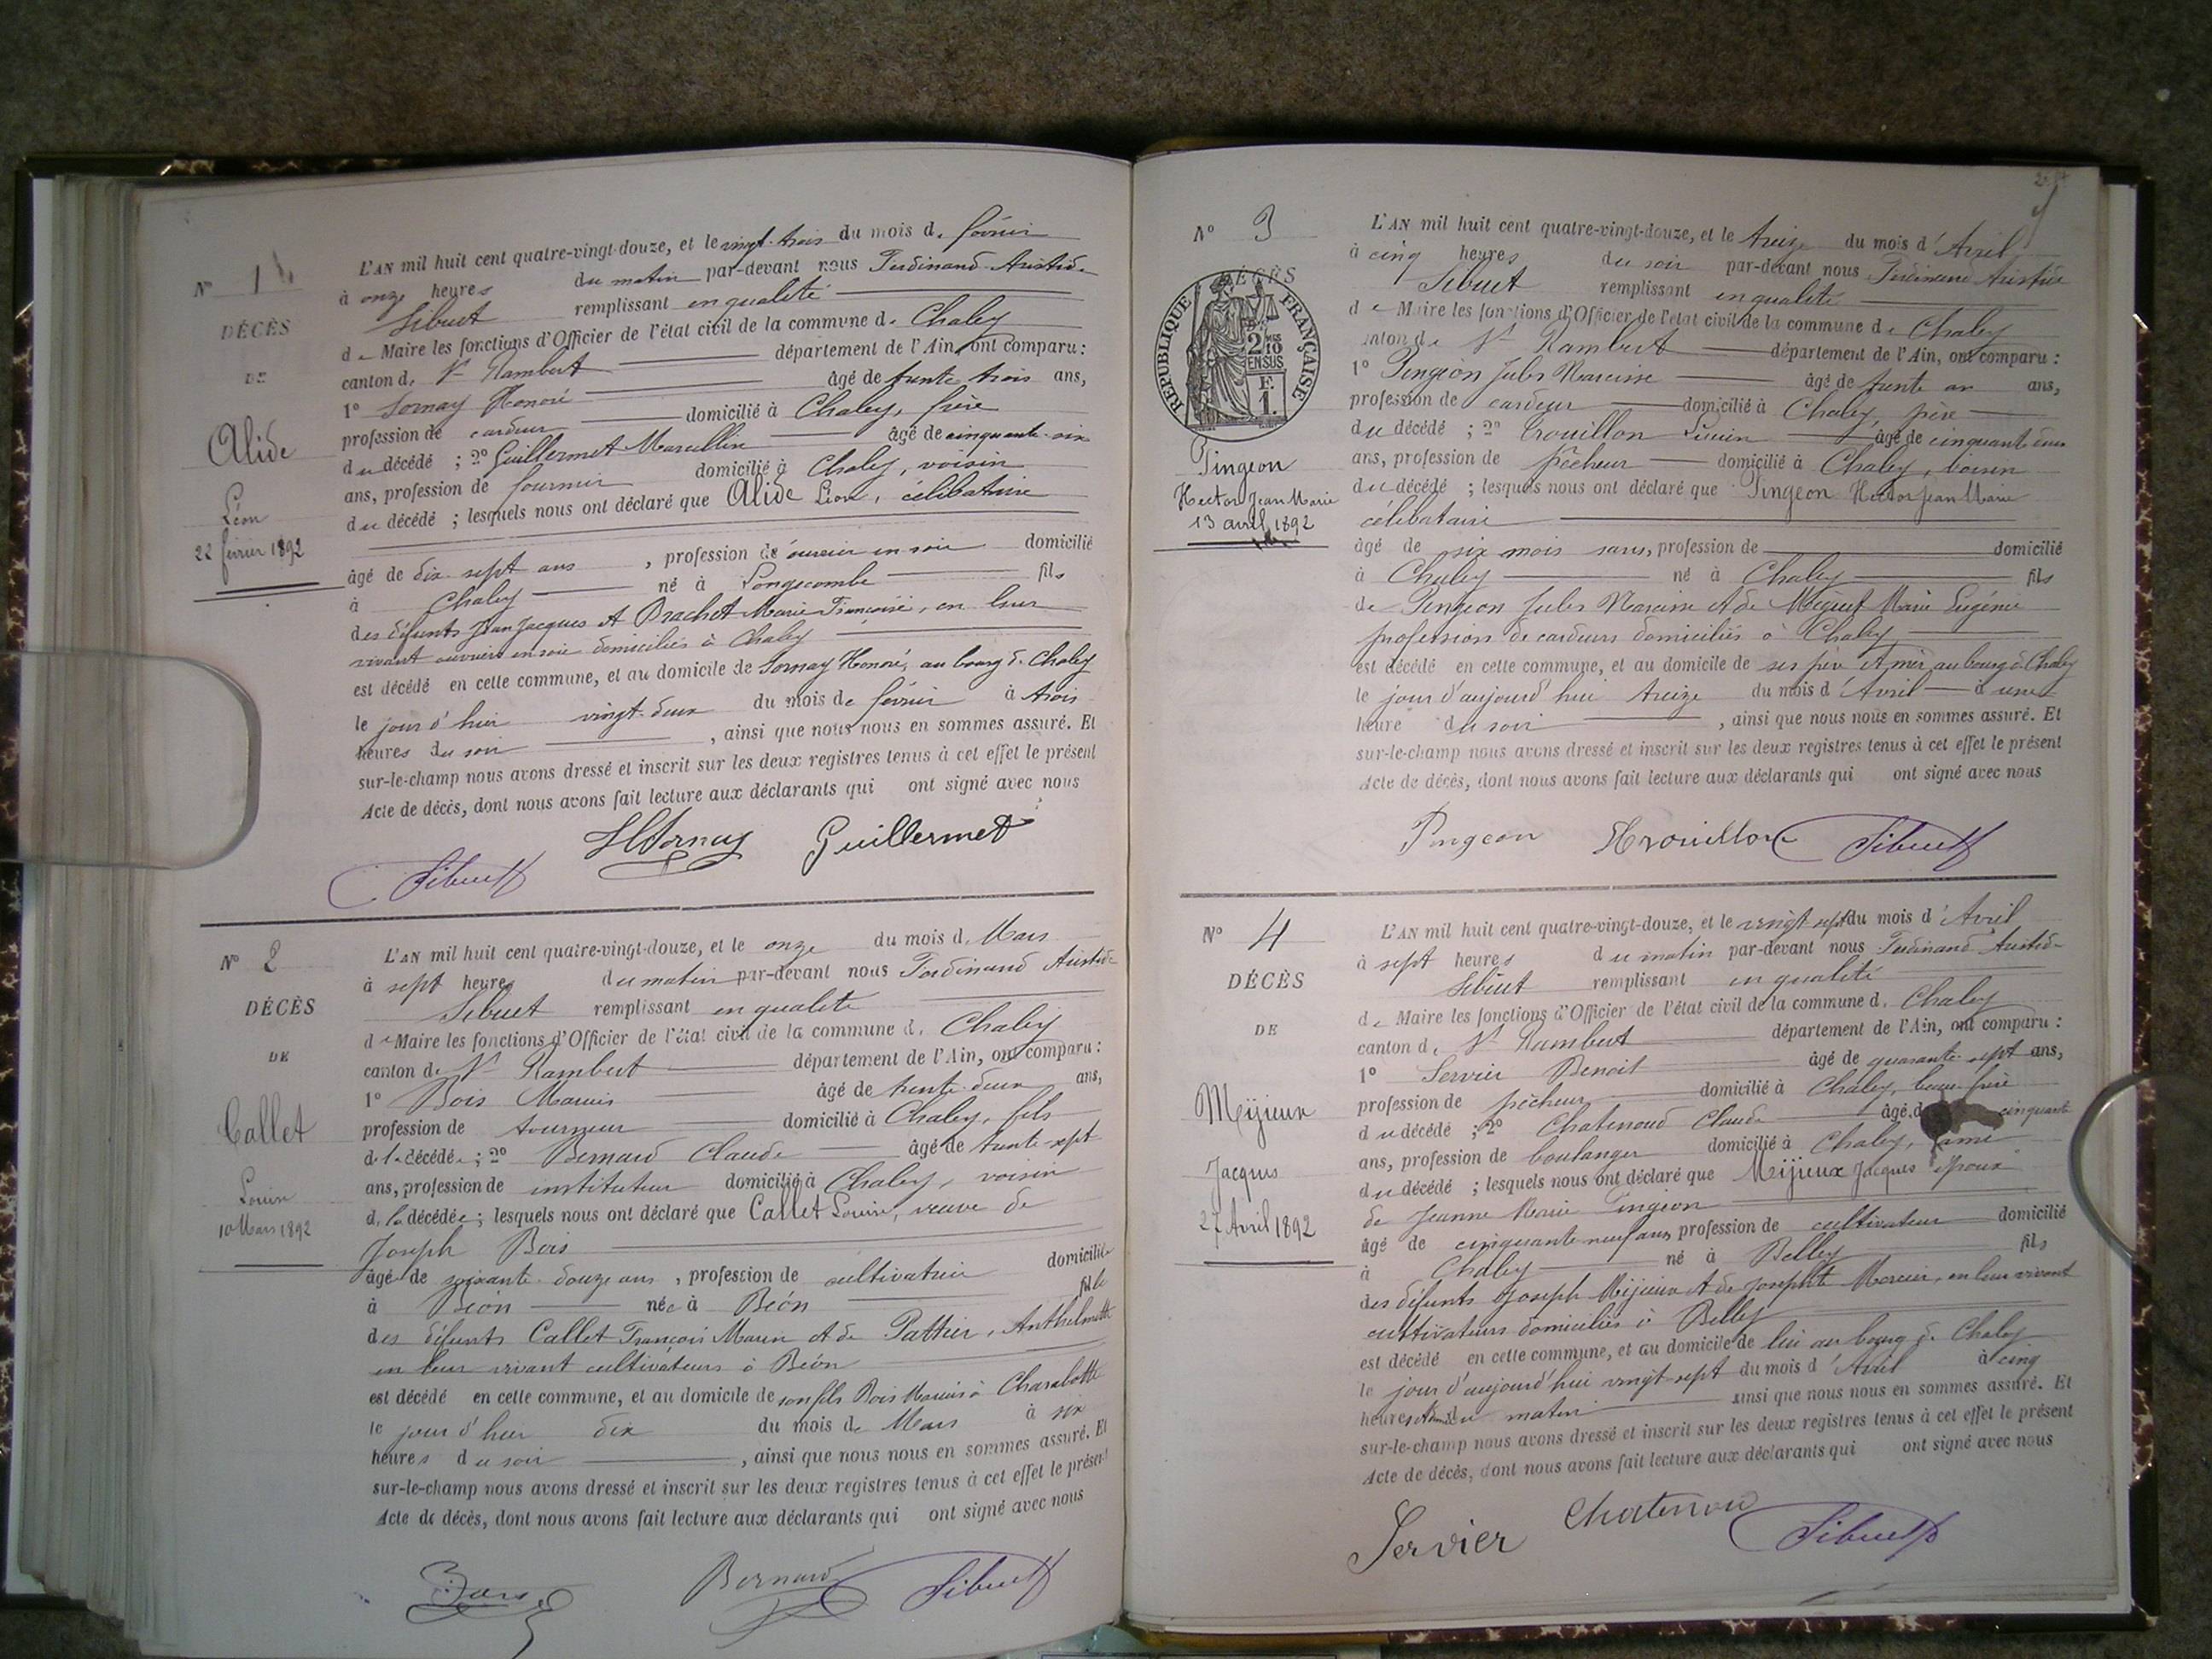 N° 1
DÉCÈS
DE
Alide
Léon
22 février 1892
L'AN mil huit cent quatre-vingt-douze, et le vingt-trois du mois de février
à onze heures du matin par-devant nous Ferdinand Aristide
Sibuet remplissant en qualité
de Maire les fonctions d'Officier de l'état civil de la commune de Chaley
canton de St Rambert département de l'Ain, ont comparu :
1° Sornay Honoré âgé de trente trois ans,
profession de cardeur domicilié à Chaley, frère
du décédé ; 2° Guillermet Marcellin âgé de cinquante-six
ans, profession de domicilié à Chaley, voisin
du décédé ; lesquels nous ont déclaré que Alide Léon, célibataire
âgé de dix-sept ans, profession de ouvrier en soie domicilié
à Chaley né à Longecombe fils
des défunts Jean Jacques et Brachet Marie Françoise, en leur
vivant ouvriers en soie domiciliés à Chaley
est décédé en cette commune, et au domicile de Sornay Honoré, au bourg de Chaley
le jour d'hier vingt-deux du mois de février à trois
heures du soir, ainsi que nous nous en sommes assuré. Et
sur-le-champ nous avons dressé et inscrit sur les deux registres tenus à cet effet le présent
Acte de décès, dont nous avons fait lecture aux déclarants qui ont signé avec nous
HSornay Guillermet
Sibuet
N° 2
DÉCÈS
DE
Callet
Louise
10 Mars 1892
L'AN mil huit cent quatre-vingt-douze, et le onze du mois de Mars
à sept heures du matin par-devant nous Ferdinand Aristide
Sibuet remplissant en qualité
de Maire les fonctions d'Officier de l'état civil de la commune de Chaley
canton de St Rambert département de l'Ain, ont comparu :
1° Bois Marius âgé de trente-deux ans,
profession de tourneur domicilié à Chaley, fils
de la décédée ; 2° Bernard Claude âgé de trente-sept
ans, profession de instituteur domicilié à Chaley, voisin
de la décédée ; lesquels nous ont déclaré que Callet Louise, veuve de
Joseph Bois
âgé de soixante-douze ans, profession de cultivatrice domiciliée
à Béon née à Béon fille
des défunts Callet François Marin et de Pattier, Anthelmette
en leur vivant cultivateurs à Béon
est décédé en cette commune, et au domicile de son fils Bois Marius à Charabotte
le jour d'hier dix du mois de Mars à six
heures du soir, ainsi que nous nous en sommes assuré. Et
sur-le-champ nous avons dressé et inscrit sur les deux registres tenus à cet effet le présent
Acte de décès, dont nous avons fait lecture aux déclarants qui ont signé avec nous
Bois Bernard Sibuet
N° 3
DÉCÈS
RÉPUBLIQUE FRANÇAISE
2/10
EN SUS
F.
1.
Pingeon
Hector Jean Marie
13 avril 1892
L'AN mil huit cent quatre-vingt-douze, et le treize du mois d'Avril
à cinq heures du soir par-devant nous Ferdinand Aristide
Sibuet remplissant en qualité
de Maire les fonctions d'Officier de l'état civil de la commune de Chaley
canton de St Rambert département de l'Ain, ont comparu :
1° Pingeon Jules Narcisse âgé de trente un ans,
profession de cardeur domicilié à Chaley, père
du décédé ; 2° Trouillon âgé de cinquante deux
ans, profession de pêcheur domicilié à Chaley, voisin
du décédé ; lesquels nous ont déclaré que Pingeon Hector Jean Marie
célibataire
âgé de six mois sans, profession de domicilié
à Chaley né à Chaley fils
de Pingeon Jules Narcisse et de Miguet Marie Eugénie
profession de cardeurs domiciliés à Chaley
est décédé en cette commune, et au domicile de ses père et mère, au bourg de Chaley
le jour d'aujourd'hui treize du mois d'Avril à une
heure du soir, ainsi que nous nous en sommes assuré. Et
sur-le-champ nous avons dressé et inscrit sur les deux registres tenus à cet effet le présent
Acte de décès, dont nous avons fait lecture aux déclarants qui ont signé avec nous
Pingeon Trouillon Sibuet
N° 4
DÉCÈS
DE
Mijieux
Jacques
27 Avril 1892
L'AN mil huit cent quatre-vingt-douze, et le vingt sept du mois d'Avril
à sept heures du matin par-devant nous Ferdinand Aristide
Sibuet remplissant en qualité
de Maire les fonctions d'Officier de l'état civil de la commune de Chaley
canton de St Rambert département de l'Ain, ont comparu :
1° Servier Benoit âgé de quarante-sept ans,
profession de pêcheur domicilié à Chaley, beau frère
du décédé ; 2° Chatenoud Claude âgé de cinquante
ans, profession de boulanger domicilié à Chaley, ami
du décédé ; lesquels nous ont déclaré que Mijieux Jacques époux
de Jeanne Marie Pingeon
âgé de cinquante neuf ans profession de cultivateur domicilié
à Chaley né à Belley fils
des défunts Joseph Mijieux et de Josephte Mercier, en leur vivant
cultivateurs domiciliés à Belley
est décédé en cette commune, et au domicile de lui au bourg de Chaley
le jour d'aujourd'hui vingt-sept du mois d'Avril à cinq
heures et demi du matin ainsi que nous nous en sommes assuré. Et
sur-le-champ nous avons dressé et inscrit sur les deux registres tenus à cet effet le présent
Acte de décès, dont nous avons fait lecture aux déclarants qui ont signé avec nous
Servier Chatenoud Sibuet